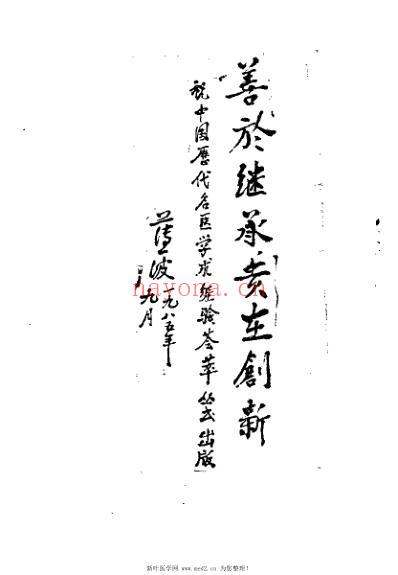 善於继承贵在創新
祝中国歷代名医学术经验荟萃丛书出版
薄一波一九八五年
九月
nayona.cn
新叶医学网 www.med2.cn 为您整理!